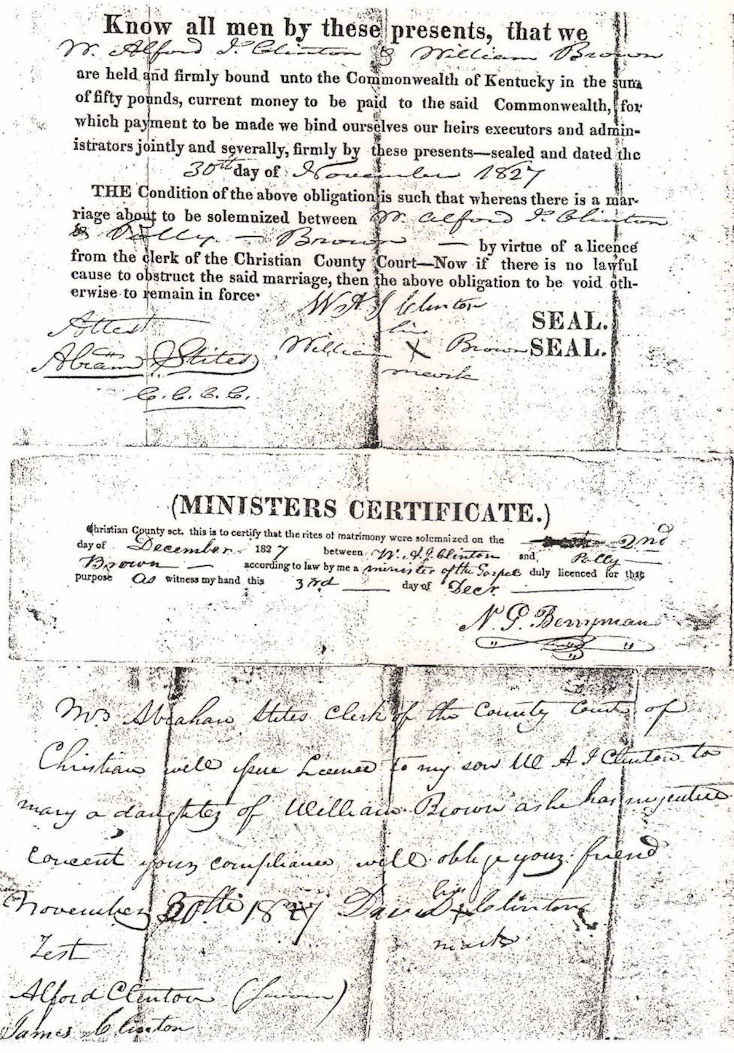 Know all men by these presents, that we
W. Alford J. Clinton & William Brown
are held and firmly bound unto the Commonwealth of Kentucky in the sum
of fifty pounds, current money to be paid to the said Commonwealth, for
which payment to be made we bind ourselves our heirs executors and admin-
istrators jointly and severally, firmly by these presents—sealed and dated the
30th day of November 1827
THE Condition of the above obligation is such that whereas there is a mar-
riage about to be solemnized between W. Alford J. Clinton
& Polly – Brown — by virtue of a licence
from the clerk of the Christian County Court—Now if there is no lawful
cause to obstruct the said marriage, then the above obligation to be void oth-
erwise to remain in force.
W A J Clinton
SEAL.
Attest
his
William X Brown SEAL.
mark
Abram Stites
C. C. C. C.
(MINISTERS CERTIFICATE.)
Christian County sct. this is to certify that the rites of matrimony were solemnized on the 2nd
day of December 1827 between W. A J Clinton and Polly —
Brown — according to law by me a minister of the Gospel duly licenced for that
purpose As witness my hand this 3rd — day of Decr.
N. G. Berryman
Abraham Stites Clerk of the County Court of
Christian will issue Licence to my son W A J Clinton to
mary a daughter of William Brown as he has my entire
concent your compliance will oblige your friend
November 30th 1827 David X Clinton
his
mark
Test
Alford Clinton (sworn)
James Clinton